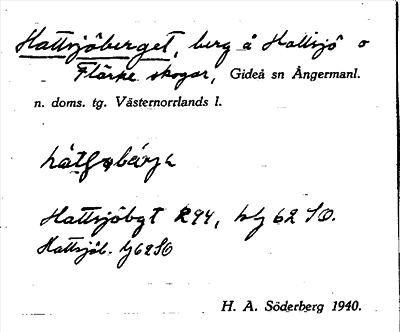 Hattsjöberget, berg å Hattsjö o
Flärke skogar, Gideå sn Ångermanl.
n. doms. tg. Västernorrlands l.
Hattsjöbgt R94, bl 62 SO.
Hattsjöb. bl 62 SO
H. A. Söderberg 1940.